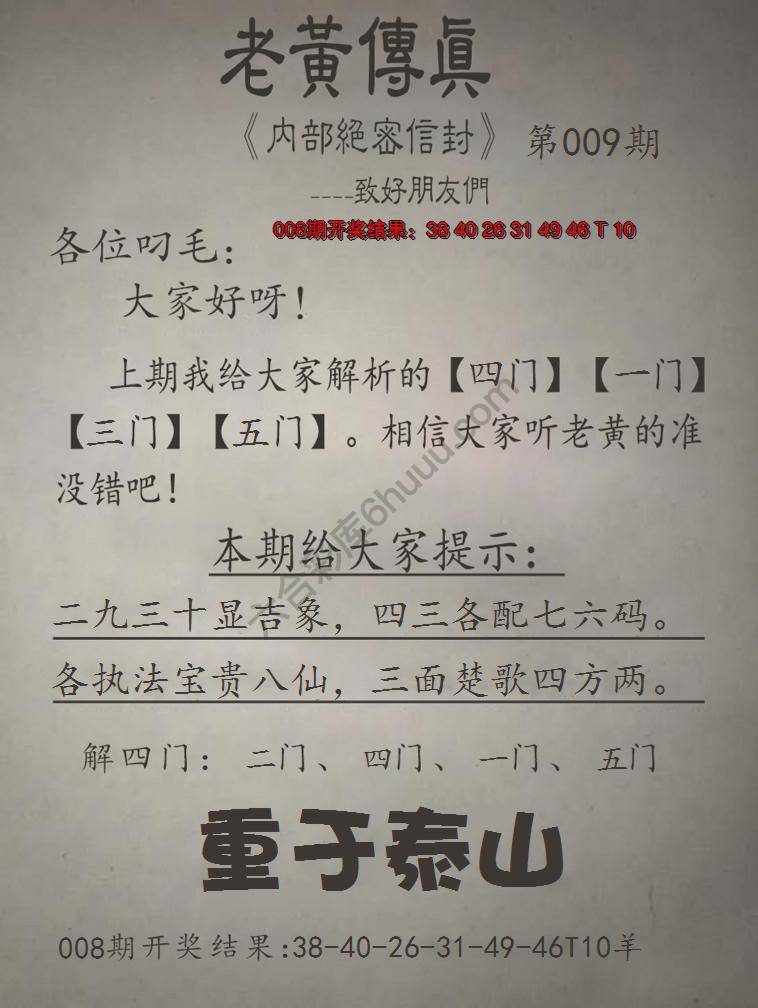 老黃傳眞
《内部絕密信封》 第009期
----致好朋友們
008期开奖结果：38 40 26 31 49 46 T 10
各位叼毛：
大家好呀！
上期我给大家解析的【四门】【一门】
【三门】【五门】。相信大家听老黄的准
没错吧！
本期给大家提示：
二九三十显吉象，四三各配七六码。
各执法宝贵八仙，三面楚歌四方两。
解四门： 二门、 四门、 一门、 五门
重于泰山
008期开奖结果:38-40-26-31-49-46T10羊
六合彩库6huuu.com